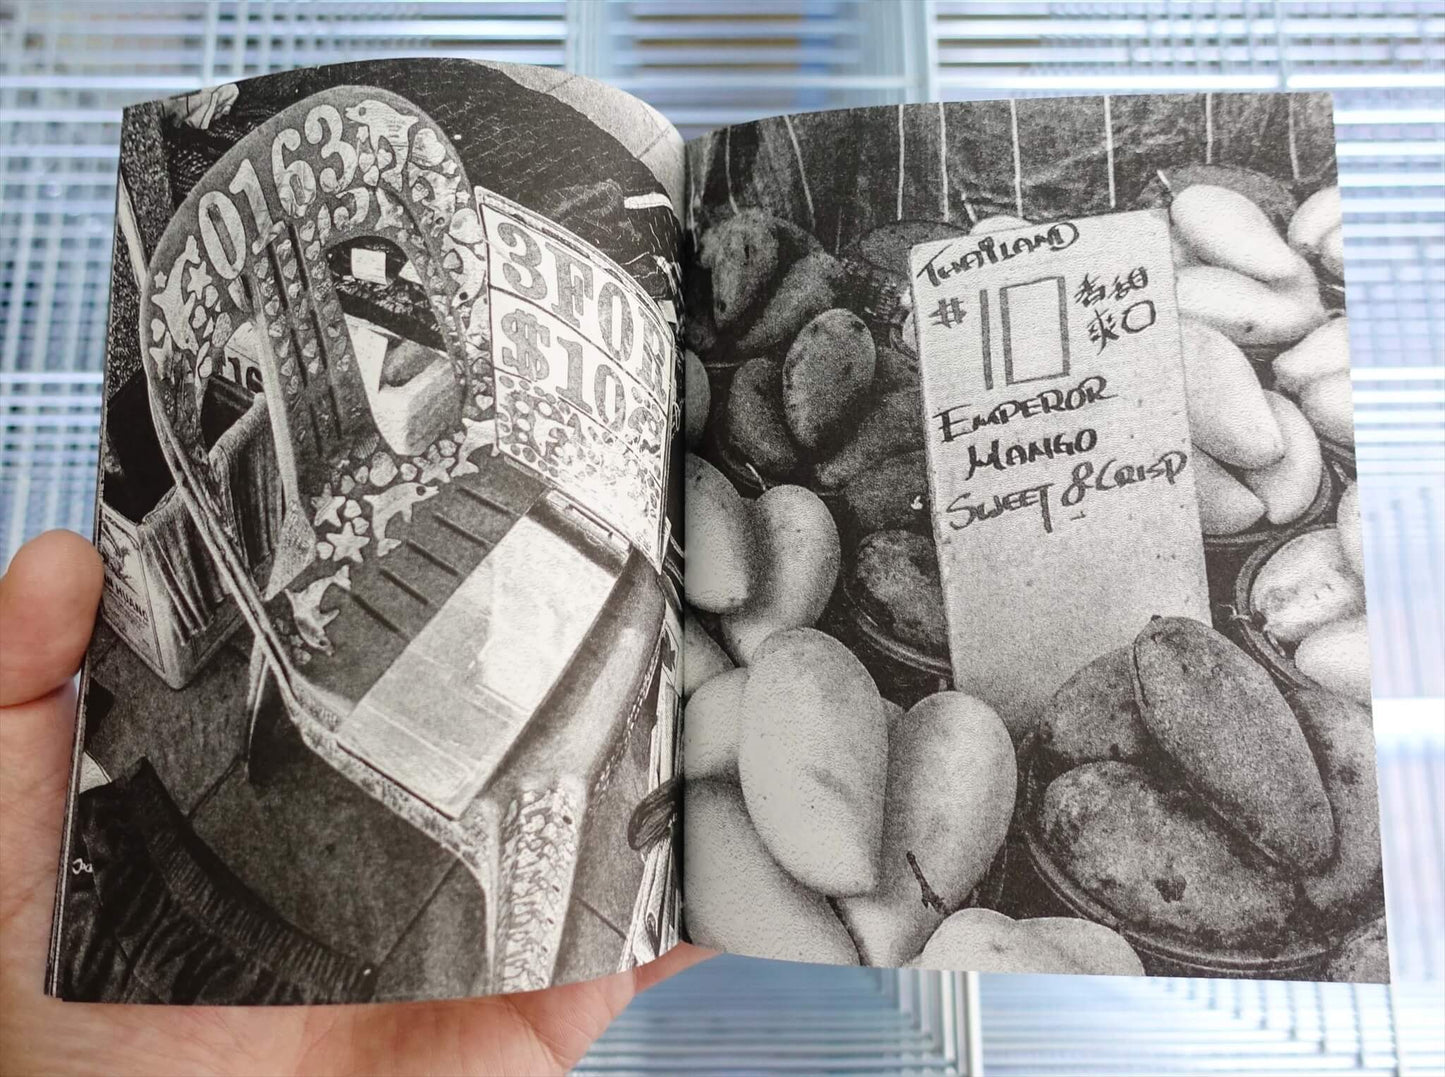 0163
3 FOR
$10
HUANG
THAILAND
# 10 香甜
爽口
EMPEROR
MANGO
SWEET & CRISP